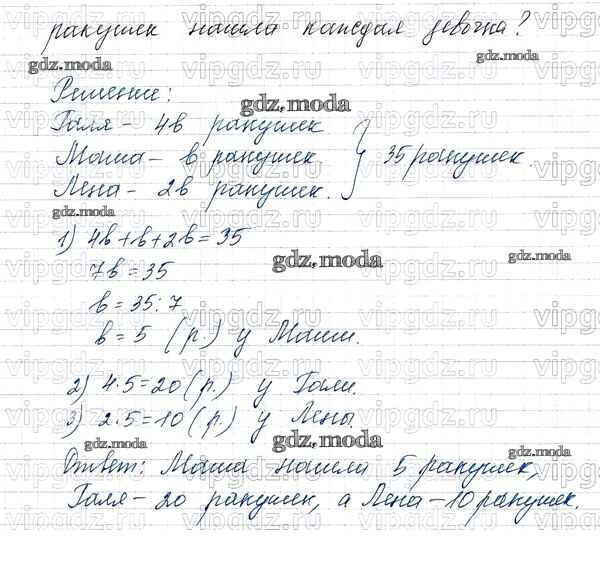 ракушек нашла каждая девочка?
Решение:
Галя - 4в ракушек
Маша - в ракушек } 35 ракушек.
Лена - 2в ракушек.
1) 4в+в+2в=35
7в=35
в=35:7
в=5 (р.) у Маши.
2) 4·5=20(р.) у Гали.
3) 2·5=10(р.) у Лены.
Ответ: Маша нашли 5 ракушек,
Галя - 20 ракушек, а Лена - 10 ракушек.
gdz.moda
gdz.moda
gdz.moda
gdz.moda
gdz.moda
gdz.moda
gdz.moda
gdz.moda
gdz.moda
vipgdz.ru